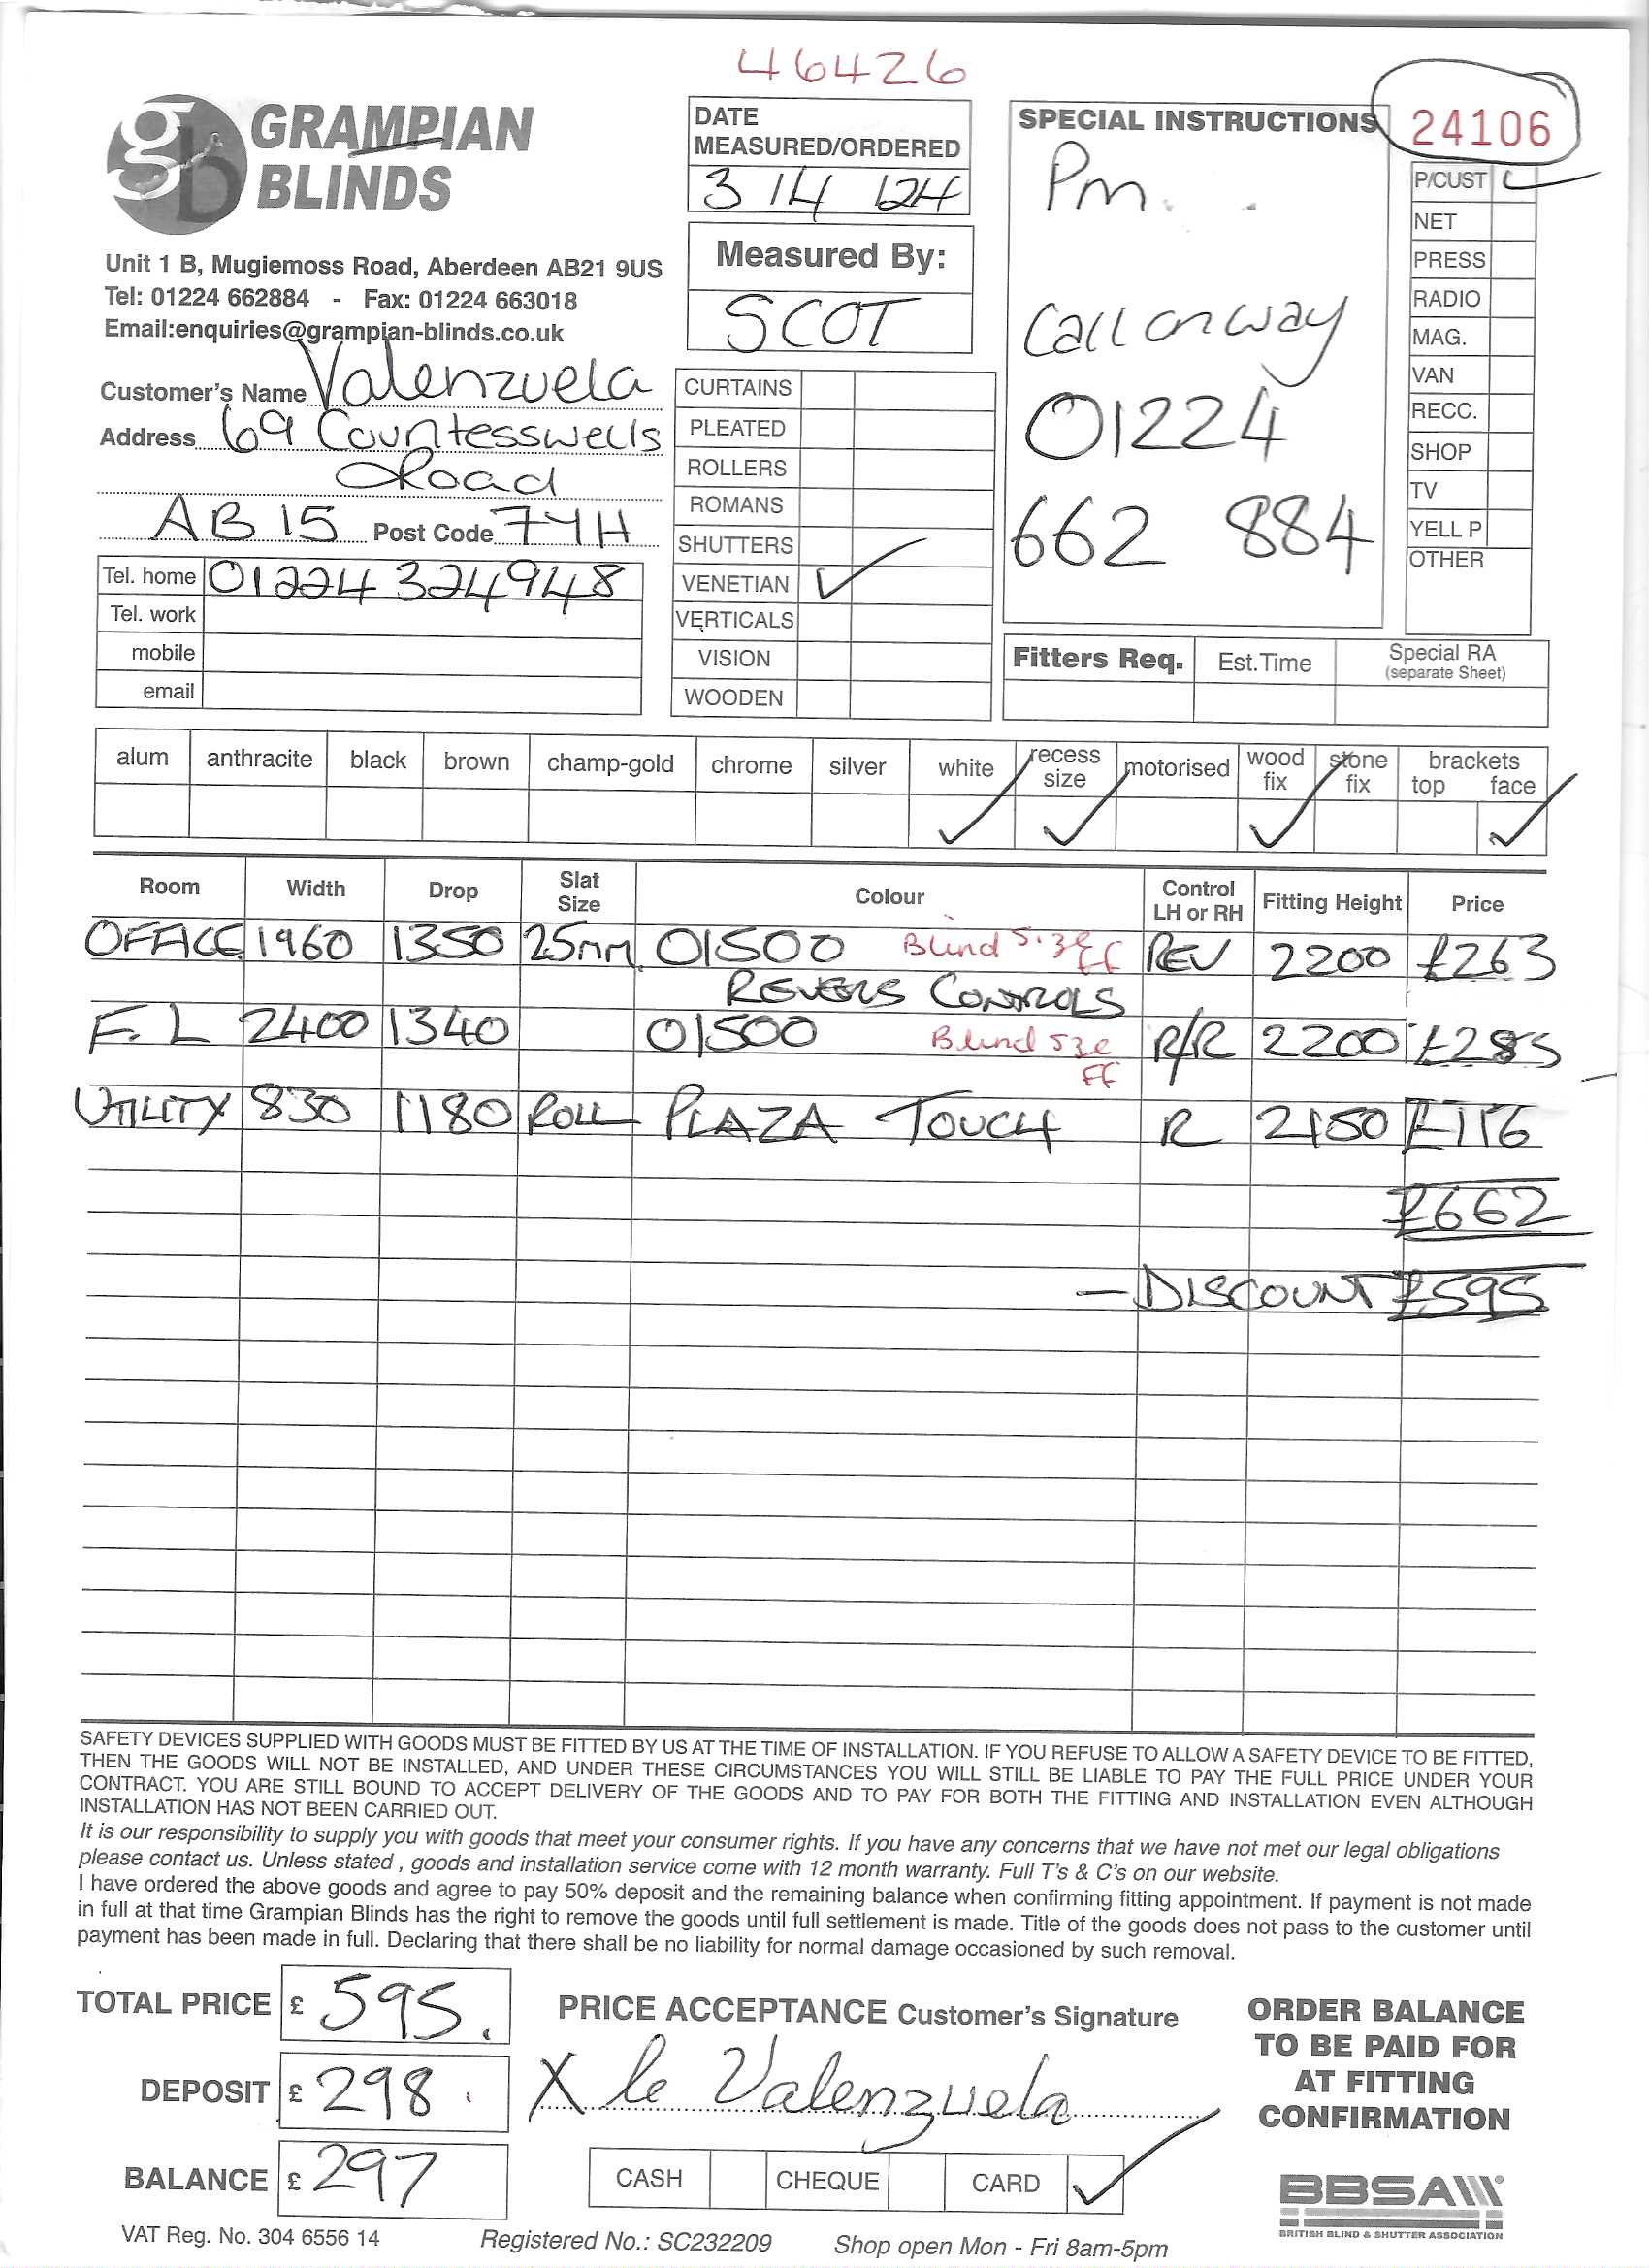 46426
GRAMPIAN
BLINDS
Unit 1 B, Mugiemoss Road, Aberdeen AB21 9US
Tel: 01224 662884 - Fax: 01224 663018
Email:enquiries@grampian-blinds.co.uk
Customer's Name Valenzuela
Address 69 Countesswells
Road
AB15 Post Code 7YH
Tel. home 01224 324948
Tel. work
mobile
email
DATE
MEASURED/ORDERED
3/4/24
Measured By:
SCOT
CURTAINS
PLEATED
ROLLERS
ROMANS
SHUTTERS
VENETIAN ✓
VERTICALS
VISION
WOODEN
SPECIAL INSTRUCTIONS
Pm.
Call on way
01224
662 884
24106
P/CUST ✓
NET
PRESS
RADIO
MAG.
VAN
RECC.
SHOP
TV
YELL P
OTHER
Fitters Req. Est.Time Special RA
(separate Sheet)
alum anthracite black brown champ-gold chrome silver white recess size motorised wood fix stone fix brackets top face
✓ ✓ ✓ ✓
Room Width Drop Slat Size Colour Control LH or RH Fitting Height Price
OFFICE 1960 1350 25mm 01500 Blind Size FF REV 2200 £263
REVERS CONTROLS
F.L 2400 1340 01500 Blind Sze FF R/R 2200 £283
UTILITY 830 1180 ROLL PLAZA TOUCH R 2150 £116
£662
- DISCOUNT £595
SAFETY DEVICES SUPPLIED WITH GOODS MUST BE FITTED BY US AT THE TIME OF INSTALLATION. IF YOU REFUSE TO ALLOW A SAFETY DEVICE TO BE FITTED,
THEN THE GOODS WILL NOT BE INSTALLED, AND UNDER THESE CIRCUMSTANCES YOU WILL STILL BE LIABLE TO PAY THE FULL PRICE UNDER YOUR
CONTRACT. YOU ARE STILL BOUND TO ACCEPT DELIVERY OF THE GOODS AND TO PAY FOR BOTH THE FITTING AND INSTALLATION EVEN ALTHOUGH
INSTALLATION HAS NOT BEEN CARRIED OUT.
It is our responsibility to supply you with goods that meet your consumer rights. If you have any concerns that we have not met our legal obligations
please contact us. Unless stated , goods and installation service come with 12 month warranty. Full T's & C's on our website.
I have ordered the above goods and agree to pay 50% deposit and the remaining balance when confirming fitting appointment. If payment is not made
in full at that time Grampian Blinds has the right to remove the goods until full settlement is made. Title of the goods does not pass to the customer until
payment has been made in full. Declaring that there shall be no liability for normal damage occasioned by such removal.
TOTAL PRICE £ 595.
DEPOSIT £ 298.
BALANCE £ 297
PRICE ACCEPTANCE Customer's Signature
X le Valenzuela
CASH CHEQUE CARD ✓
ORDER BALANCE
TO BE PAID FOR
AT FITTING
CONFIRMATION
BBSA
BRITISH BLIND & SHUTTER ASSOCIATION
VAT Reg. No. 304 6556 14 Registered No.: SC232209 Shop open Mon - Fri 8am-5pm